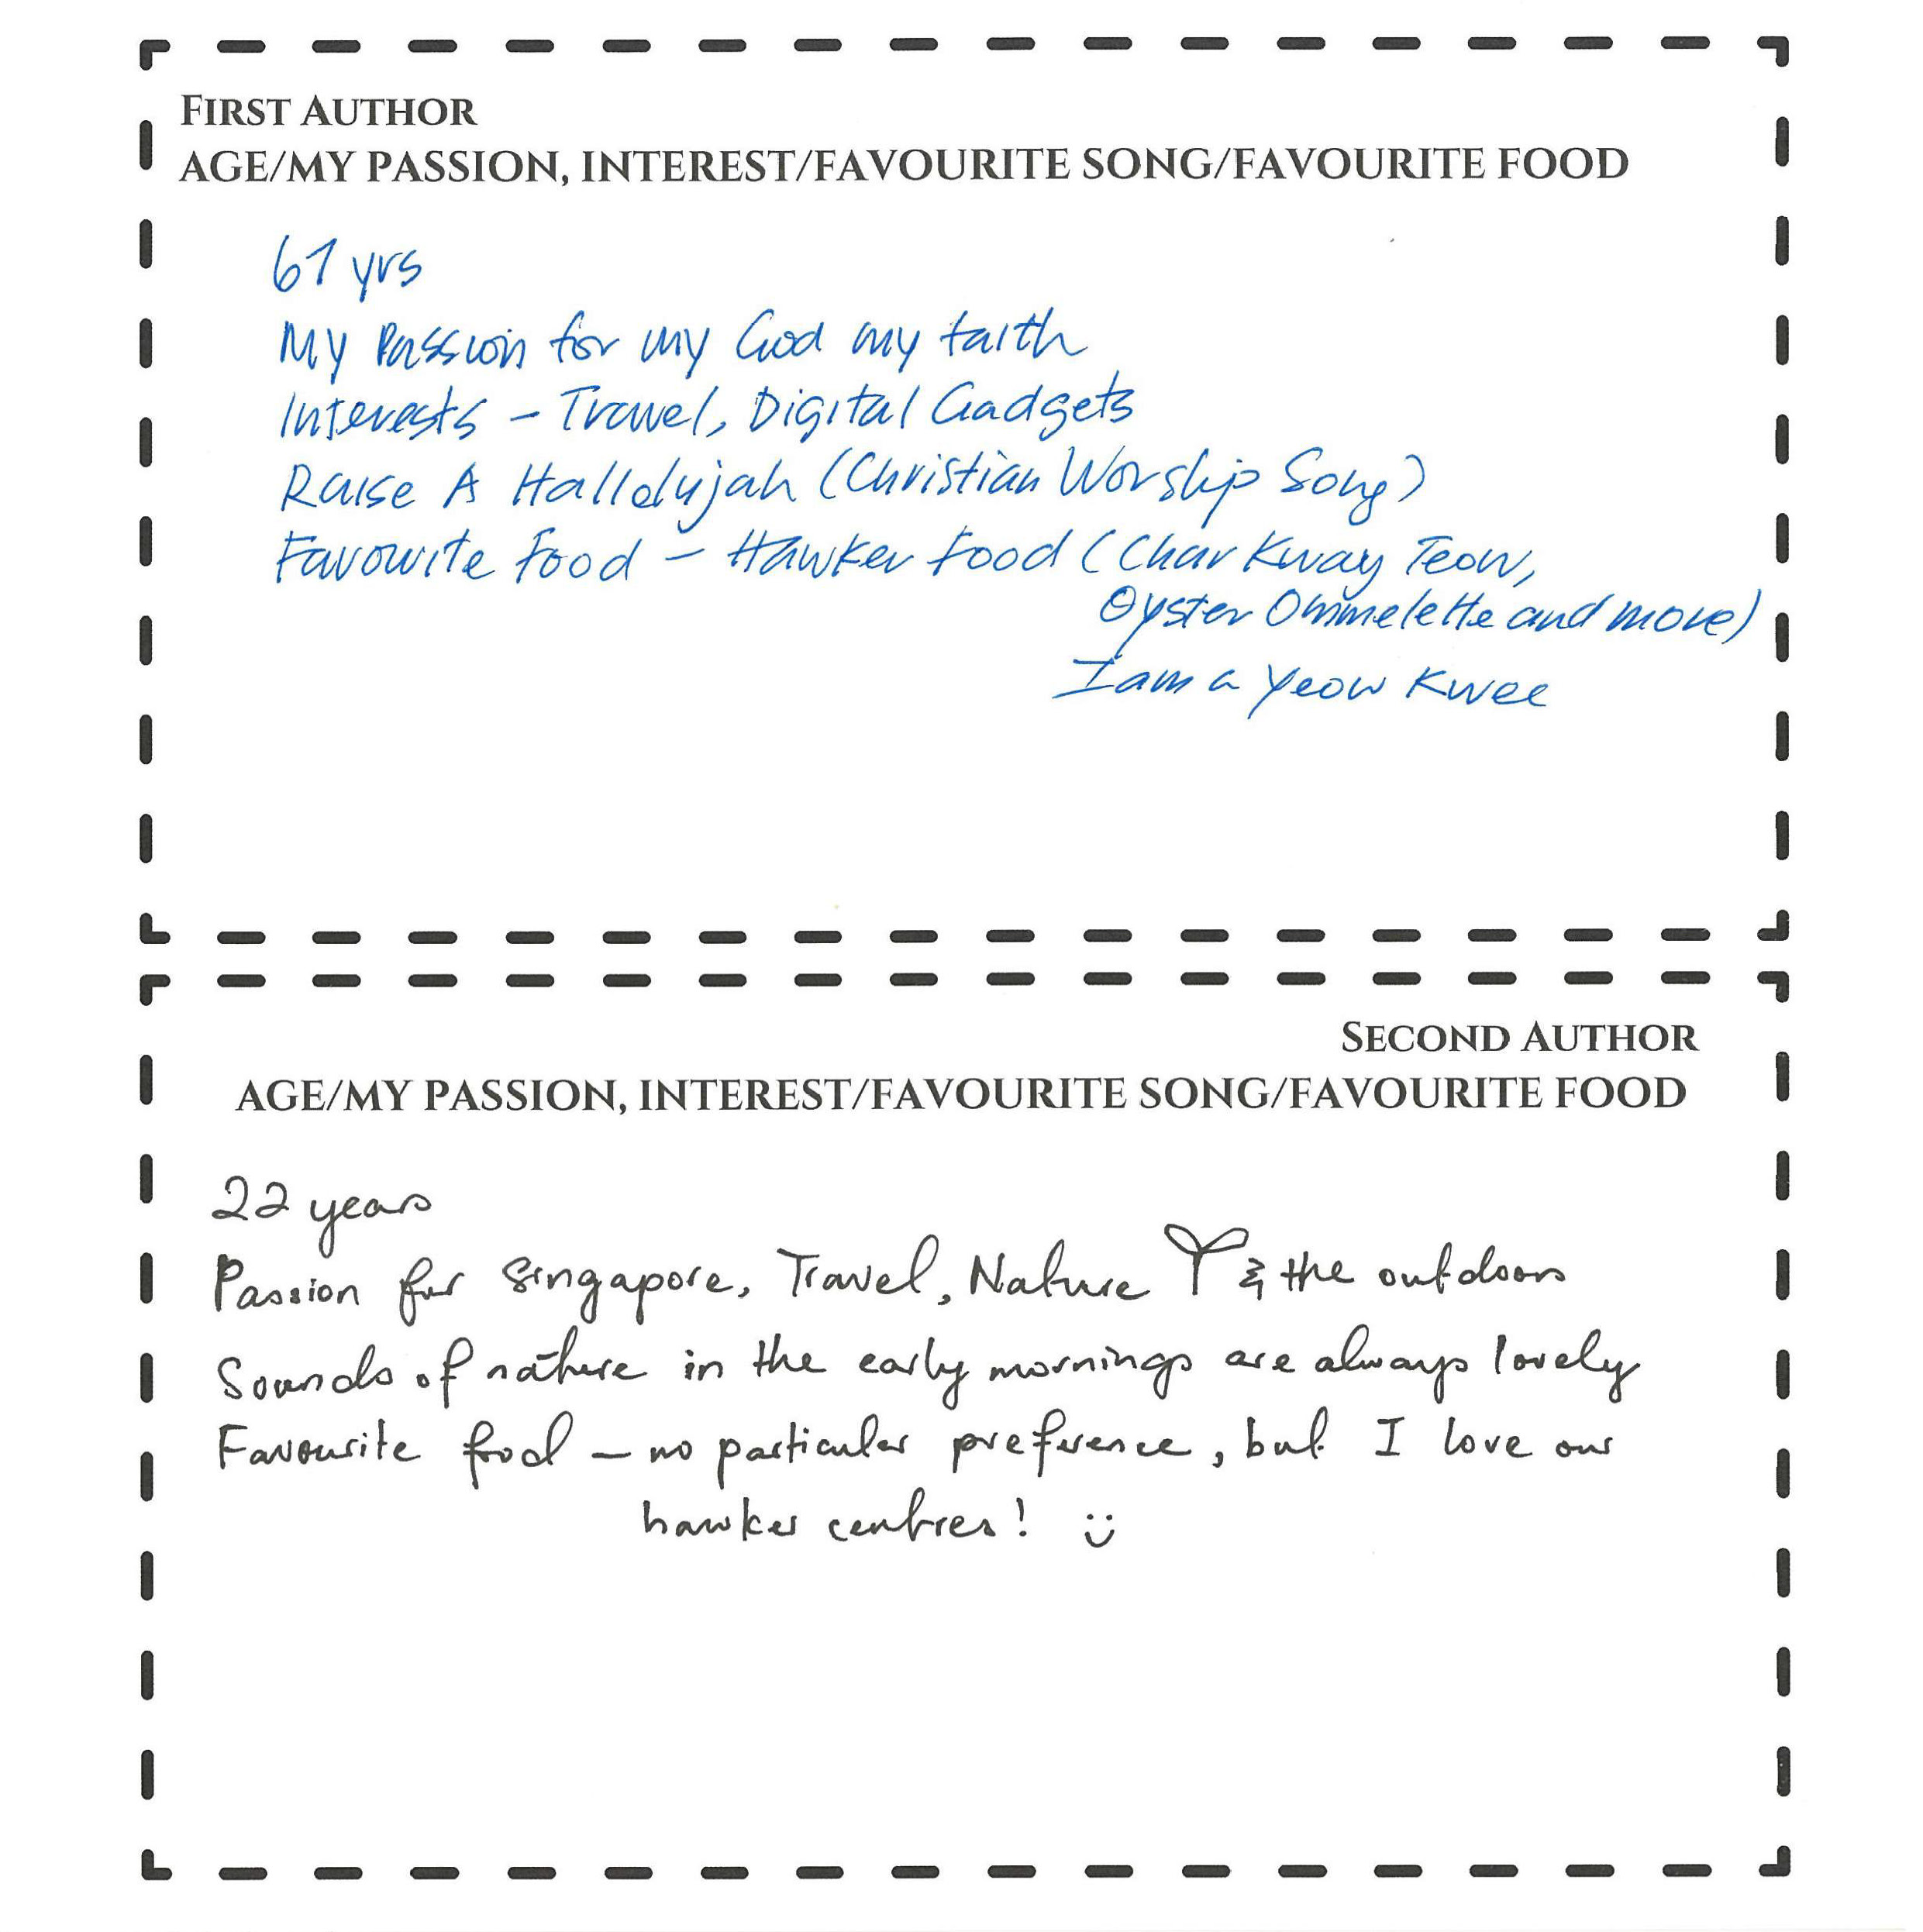 FIRST AUTHOR
AGE/MY PASSION, INTEREST/FAVOURITE SONG/FAVOURITE FOOD
61 yrs
My Passion for my God my faith
Interests - Travel, Digital Gadgets
Raise A Hallelujah (Christian Worship Song)
Favourite Food - Hawker Food (Char Kway Teow,
Oyster Ommelette and more)
I am a Yeow Kwee
SECOND AUTHOR
AGE/MY PASSION, INTEREST/FAVOURITE SONG/FAVOURITE FOOD
22 years
Passion for Singapore, Travel, Nature & the outdoors
Sounds of nature in the early mornings are always lovely
Favourite food - no particular preference, but I love our
hawker centres! :)